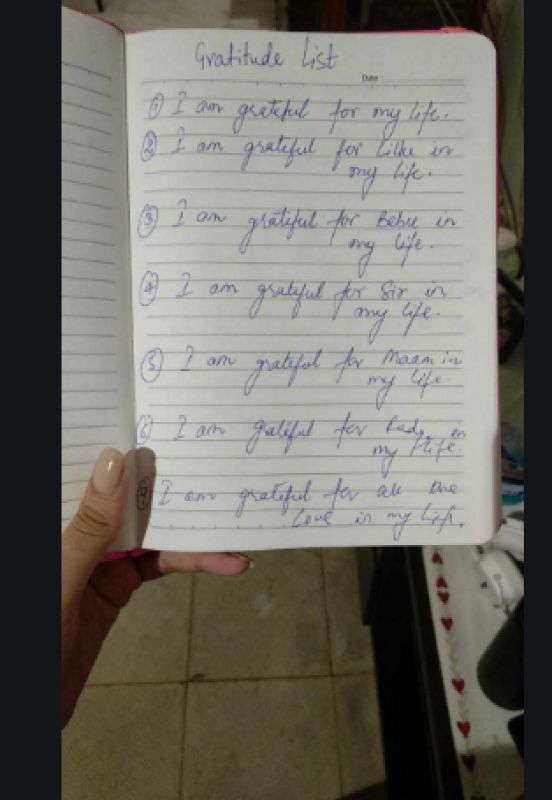 Gratitude List
Date
① I am grateful for my life.
② I am grateful for Lilke in
my life.
③ I am grateful for Bebu in
my life.
④ I am grateful for Sir in
my life.
⑤ I am grateful for Maam in
my life.
⑥ I am grateful for in
my life.
⑦ I am grateful for all the
Love in my life.